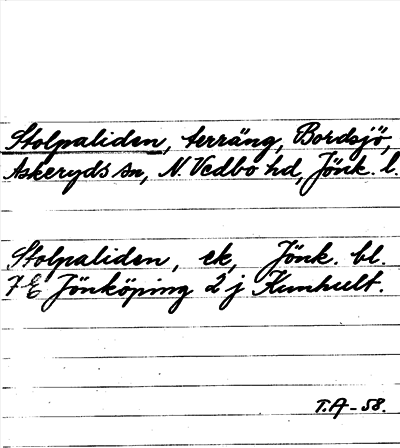 Stolpaliden, terräng, Bordsjö,
Askeryds sn, N. Vedbo hd, Jönk. l.
Stolpaliden, ek, Jönk. bl.
7E Jönköping 2 j Kumhult.
T.A - 58.